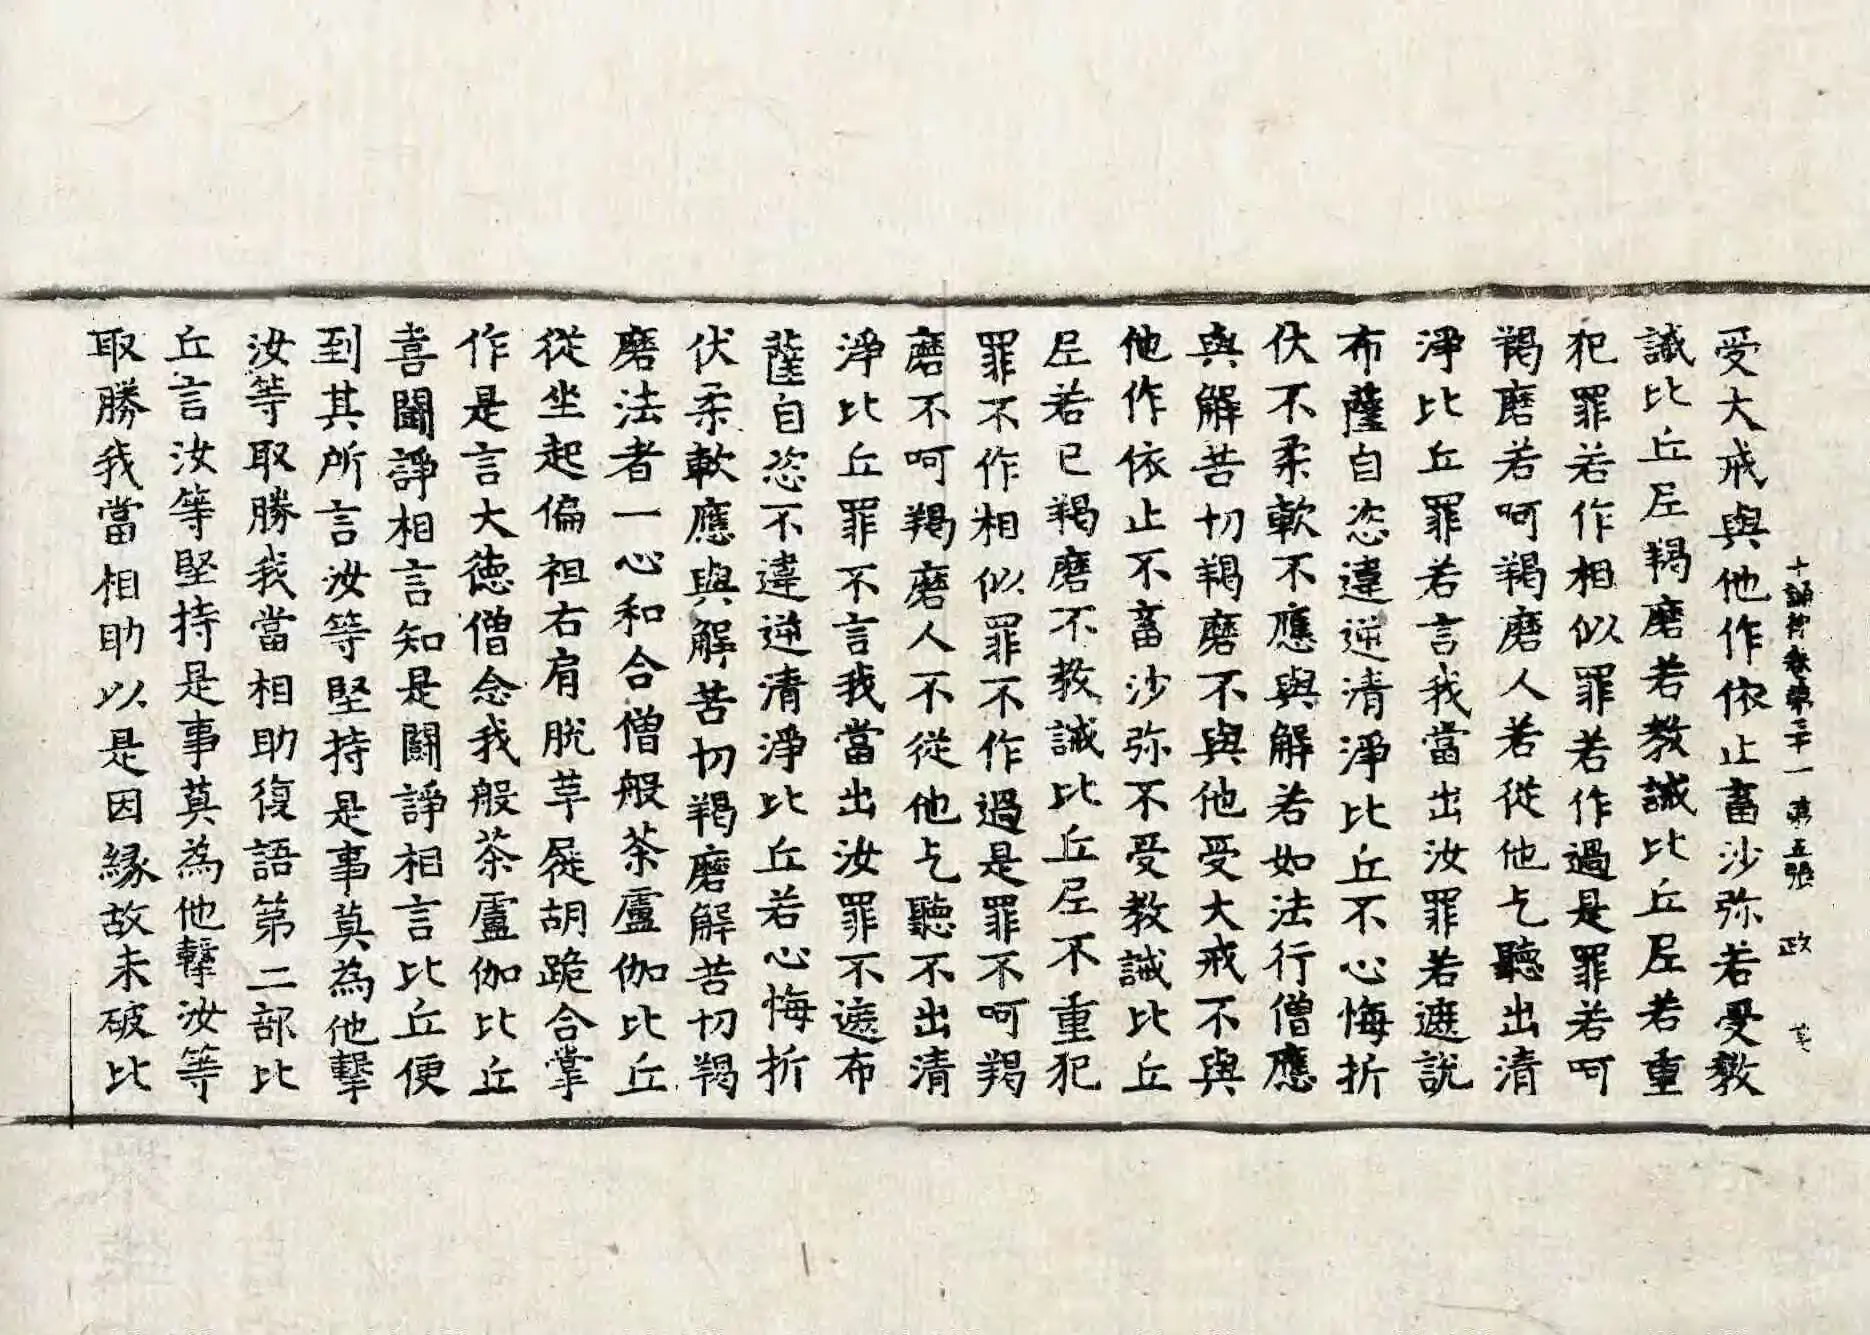 十誦律卷第三十一　第五張　政
受大戒與他作依止畜沙弥若受教
誡比丘尼羯磨若教誡比丘尼若重
犯罪若作相似罪若作過是罪若呵
羯磨若呵羯磨人若從他乞聽出清
淨比丘罪若言我當出汝罪若遮說
布薩自恣違逆清淨比丘不心悔折
伏不柔軟不應與解若如法行僧應
與解苦切羯磨不與他受大戒不與
他作依止不畜沙弥不受教誡比丘
尼若已羯磨不教誡比丘尼不重犯
罪不作相似罪不作過是罪不呵羯
磨不呵羯磨人不從他乞聽不出清
淨比丘罪不言我當出汝罪不遮布
薩自恣不違逆清淨比丘若心悔折
伏柔軟應與解苦切羯磨解苦切羯
磨法者一心和合僧般茶盧伽比丘
從坐起偏袒右肩脫革屣胡跪合掌
作是言大德僧念我般茶盧伽比丘
喜鬪諍相言知是鬪諍相言比丘便
到其所言汝等堅持是事莫為他擊
汝等取勝我當相助復語第二部比
丘言汝等堅持是事莫為他擊汝等
取勝我當相助以是因緣故未破比